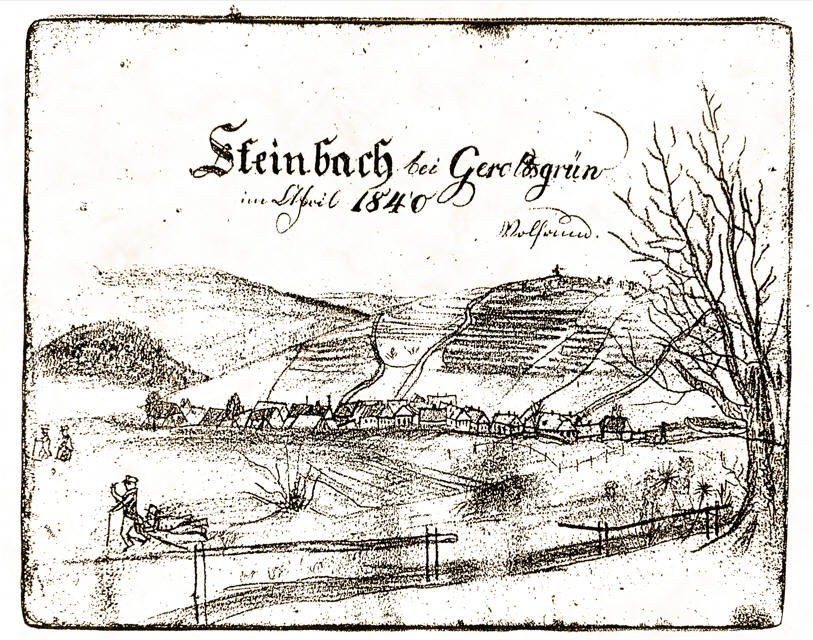 Steinbach bei Geroldsgrün
im April 1840